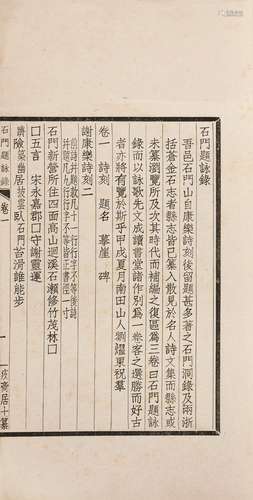 石門題詠錄
吾邑石門山自康樂詩刻後留題甚多著之石門洞錄及兩浙
括蒼金石志者縣志皆已纂入散見於名人詩文集而縣志或
未纂瀏覽所及次其時代而補編之復區為三卷曰石門題詠
錄而以詠歌先文成讀書堂諸作別為一卷客之選勝而好古
者亦將有覽於斯乎甲戌夏月南田山人劉燿東祝羣
卷一 詩刻 題名 摹崖 碑
謝康樂詩刻二
石門新營所住四面高山迴溪石瀨修竹茂林囗
囗五言 宋永嘉郡囗守謝靈運
躋險築幽居披雲臥石門苔滑誰能步
石門題詠錄 卷一
一 疚齋居十纂